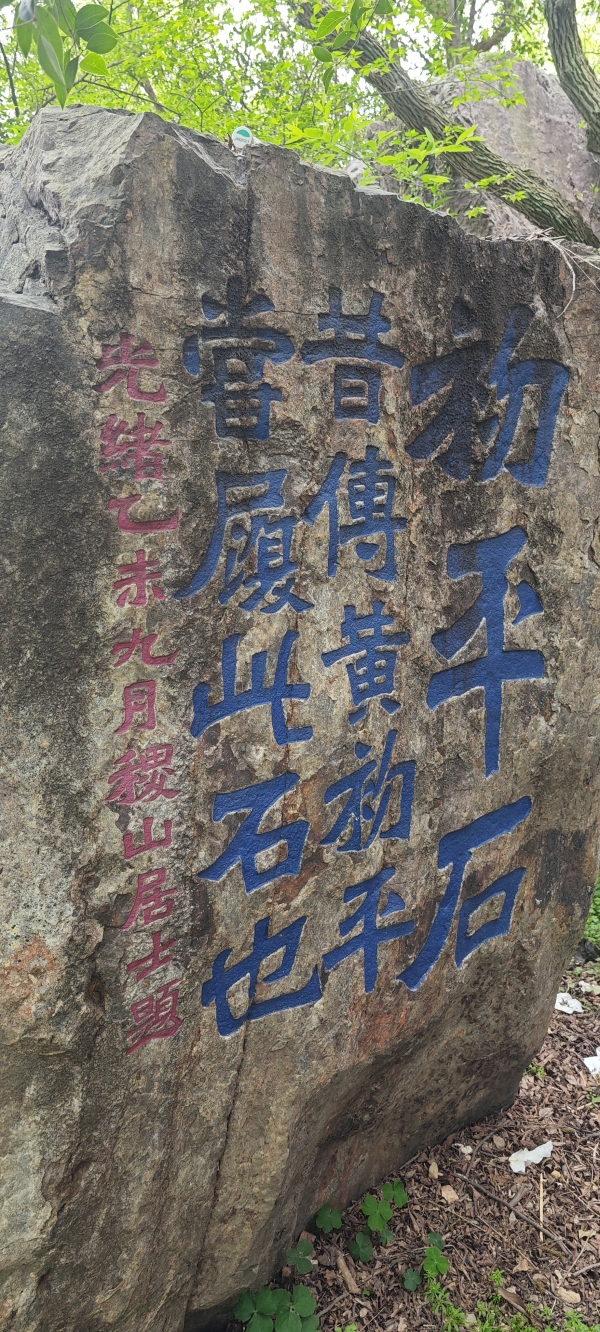 初平石
昔傳黃初平
嘗履此石也
光緒乙未九月稷山居士題